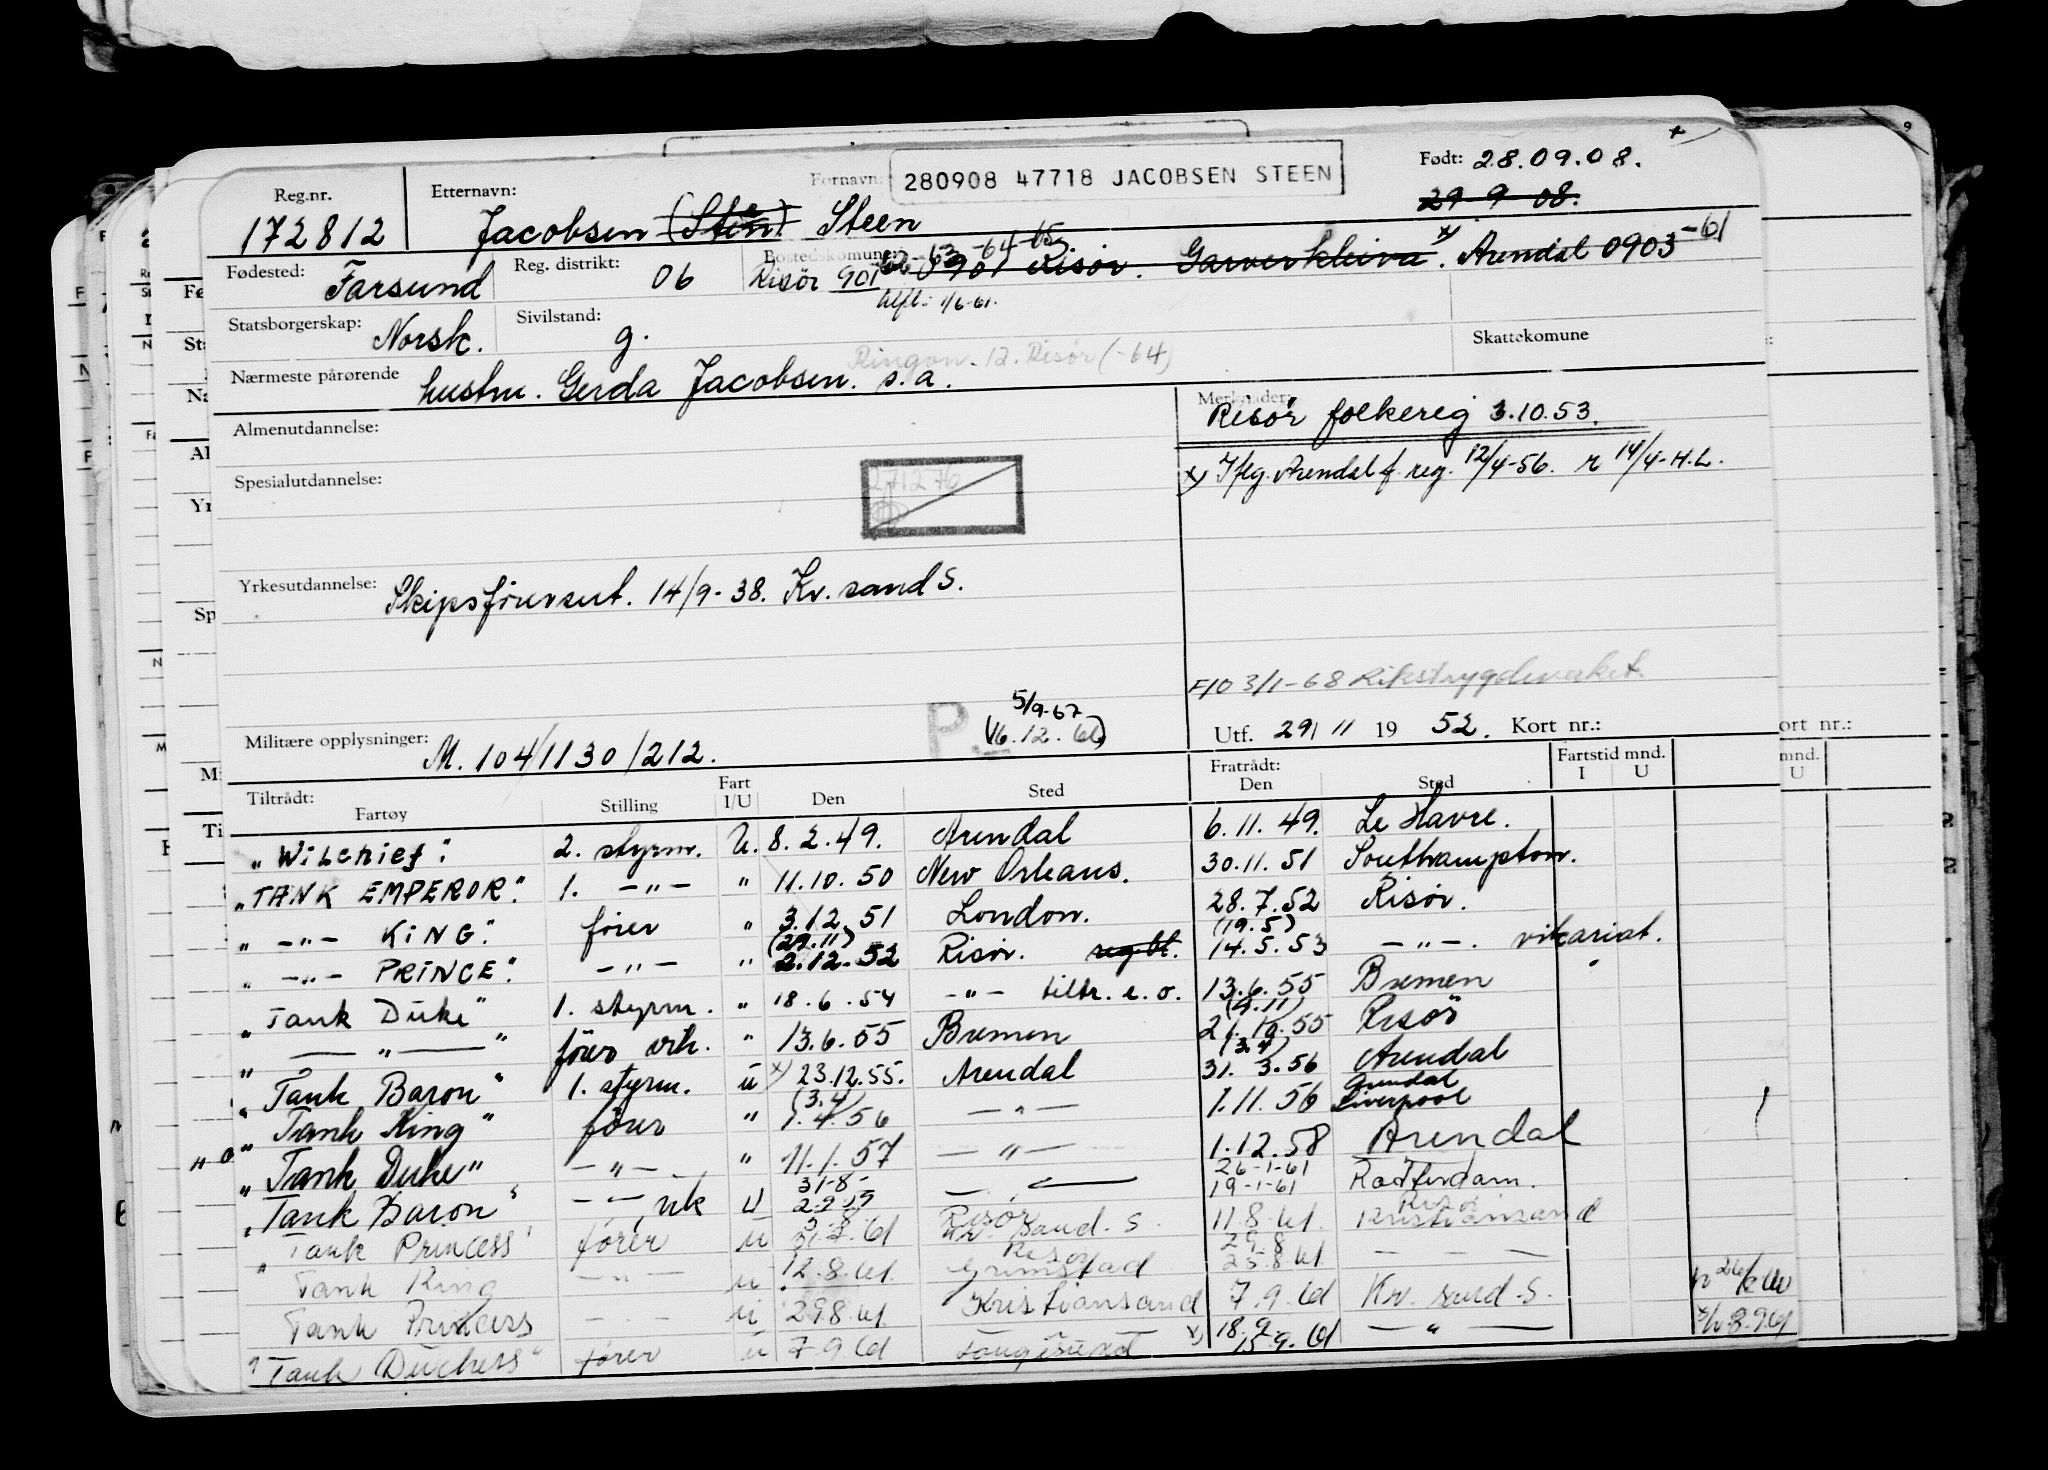 Reg.nr. Etternavn: Fornavn: 280908 47718 JACOBSEN STEEN Født: 28.09.08.
29 9 08.
172812 Jacobsen (Sten) Steen
Fødested: Farsund Reg. distrikt: 06 Bostedskomune: Risör 901 62-63-64-65 0901 Risör. Garverkleiva. x) Arendal 0903 -61
1/6-61.
Statsborgerskap: Norsk. Sivilstand: g. Skattekomune
Ringvn. 12. Risör (-64)
Nærmeste pårørende hustru. Gerda Jacobsen. s.a.
Merknader:
Risör folkereg 3.10.53.
Almenutdannelse:
x) Iflg. Arendal f. reg. 12/4-56. r 14/4-H.L.
Spesialutdannelse:
271276
Yrkesutdannelse: Skipsförersert. 14/9-38. Kr. sand S.
F10 3/1-68 Rikstrygdeverket.
5/9-67
P. (16.12.66)
Militære opplysninger: M. 104/1130/212.
Utf. 29/11 19 52. Kort nr.:
Tiltrådt: Fartøy Stilling Fart I/U Den Sted Fratrådt: Den Sted Fartstid mnd. I U
"Wilchief" 2. styrm. U. 8.2.49. Arendal 6.11.49. Le Havre.
"TANK EMPEROR" 1. -"- " 11.10.50 New Orleans. 30.11.51 Southampton.
" -"- KING" förer " 3.12.51 London. 28.7.52 Risör.
(29.11) (19.5)
" -"- PRINCE" -"- " 2.12.52 Risör. reg.bt. 14.5.53 -"-. vikariat.
"Tank Duke" 1. styrm. " 18.6.54 -"- tiltr. e.o. 13.6.55 Bremen
(4.11)
" — " — " förer vik. " 13.6.55 Bremen 21.10.55 Risör
(3.4)
"Tank Baron" 1. styrm. u x) 23.12.55. Arendal 31.3.56 Arendal
(3.4) Arendal
"Tank King" förer " 1.4.56 -"- 1.11.56 Liverpool
"Tank Duke" -"- " 11.1.57 -"- 1.12.58 Arendal
31-8- 26-1-61
"Tank Baron" -"- vik U 2.9.59 -"- 19-1-61 Rotterdam.
Risör Risör
"Tank Princess" förer u 31.7.61 Kr. Sand. S. 11.8.61. Kristiansand
Risör 29.8
Tank King -"- u 12.8.61. Grimstad 25.8.61 — — —
Tank Princess - - - u 29.8.61. Kristiansand 7.9.61 Kr. sand. S.
18.9.
"Tank Duchess" förer u 7.9.61 Langesund x) 15.9.61 — " —